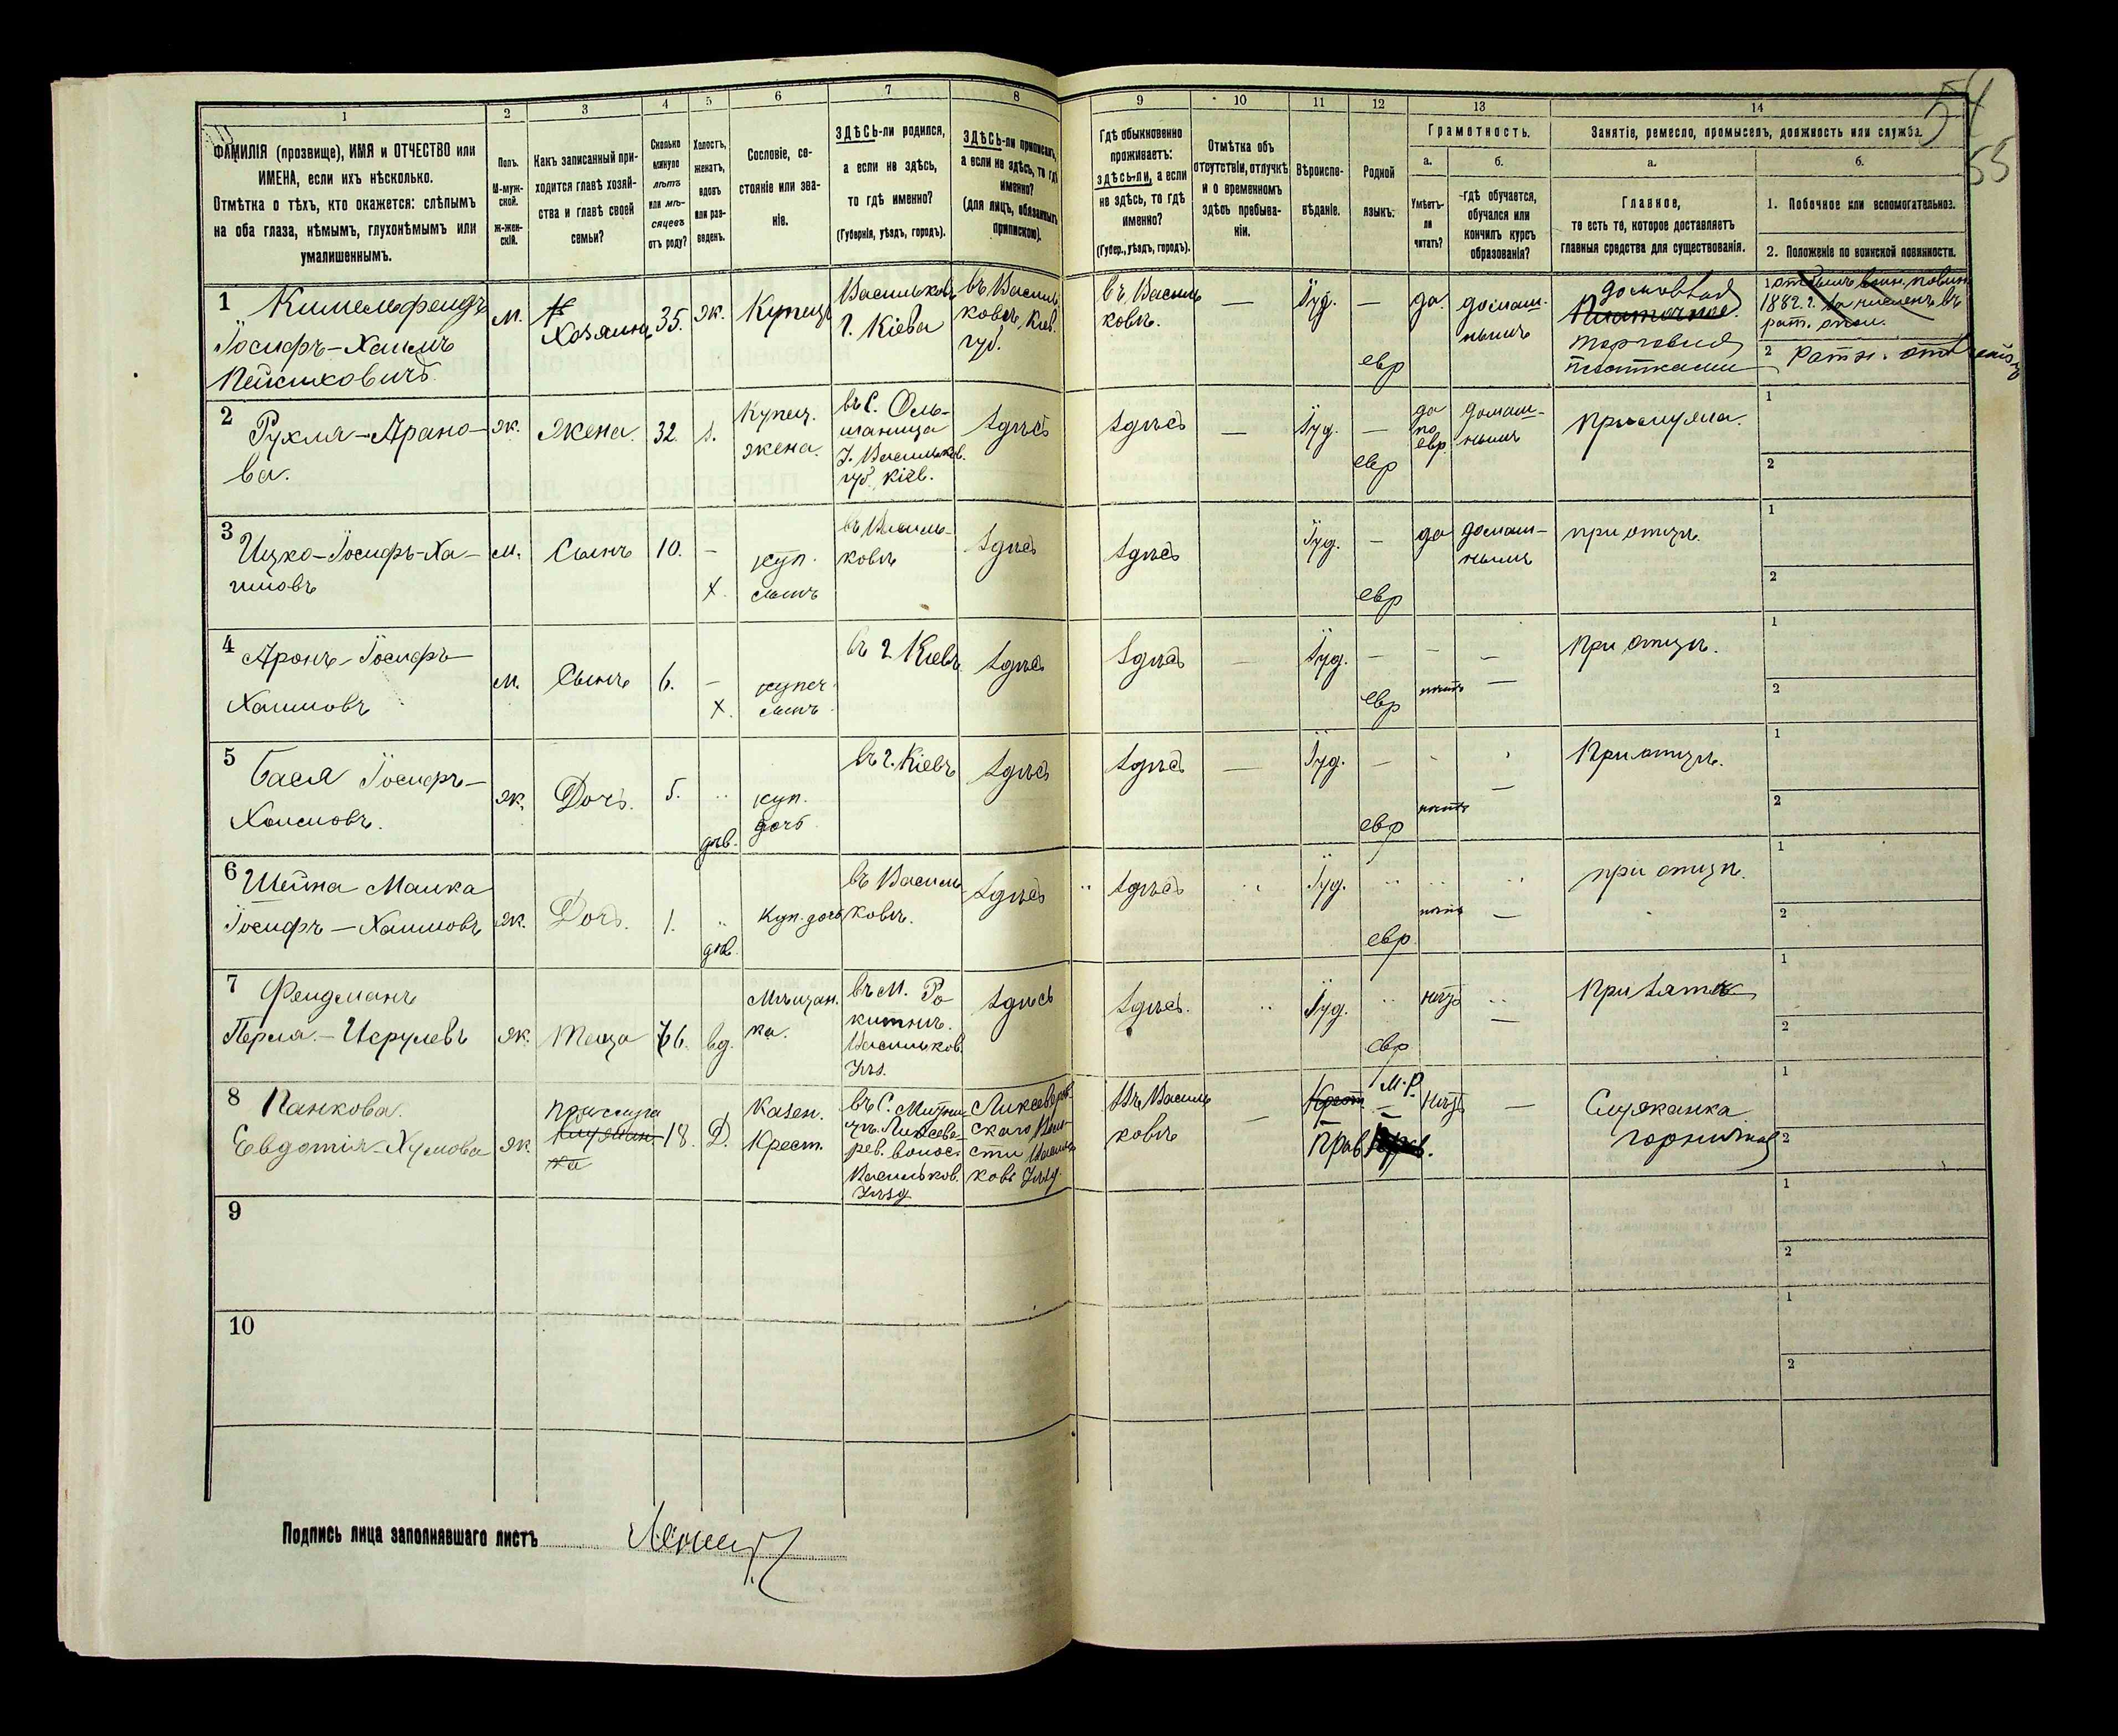 1 2 3 4 5 6 7 8 9 10 11 12 13 14
ФАМИЛІЯ (прозвище), ИМЯ и ОТЧЕСТВО или
ИМЕНА, если ихъ нѣсколько.
Отмѣтка о тѣхъ, кто окажется: слѣпымъ
на оба глаза, нѣмымъ, глухонѣмымъ или
умалишеннымъ.
Полъ.
М-муж-
ской.
Ж-жен-
скій.
Какъ записанный при-
ходится главѣ хозяй-
ства и главѣ своей
семьи?
Сколько
минуло
лѣтъ
или мѣ-
сяцевъ
отъ роду?
Холостъ,
женатъ,
вдовъ
или раз-
веденъ.
Сословіе, со-
стояніе или зва-
ніе.
ЗДѢСЬ-ли родился,
а если не здѣсь,
то гдѣ именно?
(Губернія, уѣздъ, городъ).
ЗДѢСЬ-ли приписанъ,
а если не здѣсь, то гдѣ
именно?
(для лицъ, обязанныхъ
припискою).
Гдѣ обыкновенно
проживаетъ:
здѣсь-ли, а если
не здѣсь, то гдѣ
именно?
(Губер., уѣздъ, городъ).
Отмѣтка объ
отсутствіи, отлучкѣ
и о временномъ
здѣсь пребыва-
ніи.
Вѣроиспо-
вѣданіе.
Родной
языкъ.
Грамотность.
а.
Умѣетъ-
ли
читать?
б.
-гдѣ обучается,
обучался или
кончилъ курсъ
образованія?
Занятіе, ремесло, промыселъ, должность или служба.
а.
Главное,
то есть то, которое доставляетъ
главныя средства для существованія.
б.
1. Побочное или вспомогательное.
2. Положеніе по воинской повинности.
54
55
1 Кимельфельдъ
Іосифъ-Хаимъ
м.
Хозяинъ
35.
ж.
Купецъ
Васильковъ
г. Кіева
въ Василь
ковѣ, Кіев.
губ.
въ Василь
ковѣ.
—
Іуд.
—
евр
да.
домаш-
нымъ
торговля
платками
1882 г.
2
2 Рухля-Арано-
ва.
ж.
Жена.
32.
з.
Купец.
жена.
въ с. Оль-
шаница
У. Васильков.
губ. Кіев.
здѣсь
здѣсь
—
Іуд.
—
евр
да
по
евр
домаш-
нымъ
При мужѣ.
1
2
3 Ицко-Іосифъ-Ха-
имовъ
м.
Сынъ
10.
–
х.
куп.
сынъ
въ Василь-
ковѣ
здѣсь
здѣсь
Іуд.
—
евр
да
домаш-
нымъ
при отцѣ.
1
2
4 Аронъ-Іосифъ-
Хаимовъ
м.
Сынъ
6.
–
х.
купеч.
сынъ
въ г. Кіевѣ
здѣсь
здѣсь
—
Іуд.
—
евр
нѣтъ
—
При отцѣ.
1
2
5 Бася Іосифъ-
Хаимовъ.
ж.
Дочь.
5.
дѣв.
куп.
дочь
въ г. Кіевѣ
здѣсь
здѣсь
—
Іуд.
—
евр
нѣтъ
—
При отцѣ.
1
2
6 Шейна Малка
Іосифъ-Хаимовъ
ж.
Дочь.
1.
дѣв.
Куп. дочь
въ Василь
ковѣ.
здѣсь
здѣсь
Іуд.
евр
нѣтъ
—
при отцѣ.
1
2
7 Фельдманъ
Перля.-Исрулевъ
ж.
Теща
66.
вд.
Мѣщан.
ка.
въ м. Ро
китнѣ.
Васильков.
Уѣз.
здѣсь
здѣсь.
Іуд.
евр
нѣтъ
—
При зятѣ
1
2
8 Панкова.
Евдотія-Хумова
ж.
прислуга
18.
Д.
Казен.
Крест.
въ с.
Васильков.
Уѣзд
Въ Василь
ковѣ
—
Прав.
М.Р.
Нѣтъ
—
Служанка
горничная
1
2
9
1
2
10
1
2
Подпись лица заполнявшаго листъ